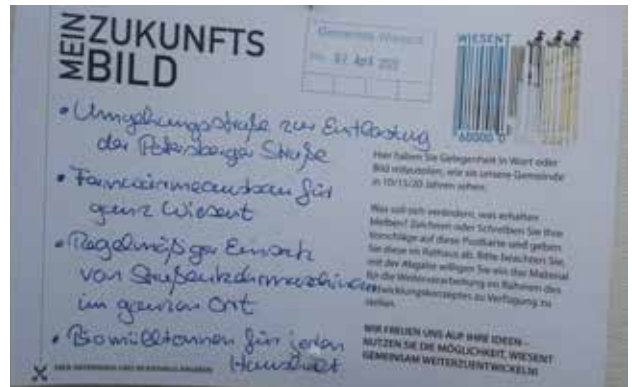 MEIN ZUKUNFTS
BILD
Gemeinde Wiesent
WIESENT
60000 0
• Umgehungsstraße zur Entlastung
der Petersberger Straße
• Fernwärmeausbau für
ganz Wiesent
• Regelmäßiger Einsatz
von Straßenkehrmaschinen
im ganzen Ort
• Biomülltonnen für jeden
Haushalt
Hier haben Sie Gelegenheit in Wort oder
Bild mitzuteilen, wie sie unsere Gemeinde
in 10/15/20 Jahren sehen.
Was soll sich verändern, was erhalten
bleiben? Zeichnen oder Schreiben Sie Ihre
Vorschläge auf diese Postkarte und geben
Sie diese im Rathaus ab. Bitte beachten Sie,
mit der Abgabe willigen Sie ein das Material
für die Weiterverarbeitung im Rahmen des
Entwicklungskonzeptes zu Verfügung zu
stellen.
WIR FREUEN UNS AUF IHRE IDEEN –
NUTZEN SIE DIE MÖGLICHKEIT, WIESENT
GEMEINSAM WEITERZUENTWICKELN!